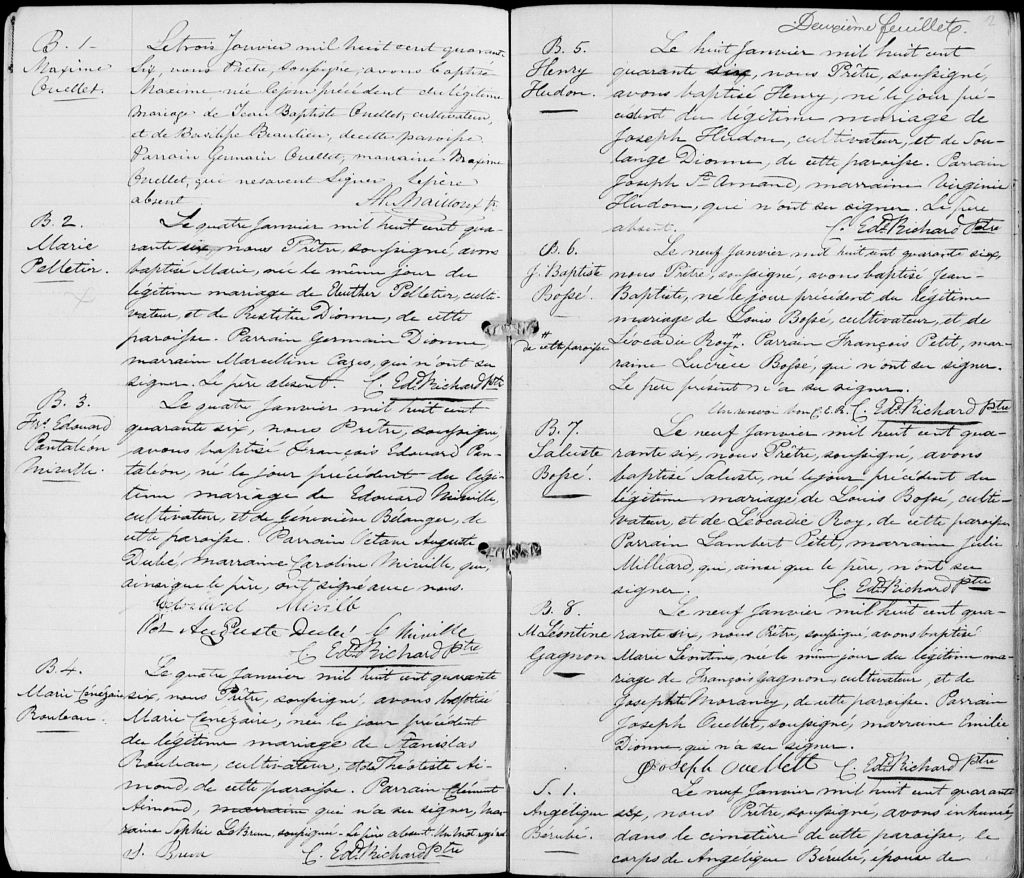 B. 1
Maxime
Ouellet.
Le trois Janvier mil huit cent quarante
six, nous Prêtre, soussigné, avons baptisé
Maxime née le jour précédent du légitime
mariage de Jean Baptiste Ouellet, cultivateur,
et de Basilisse Beaulieu, de cette paroisse
Parrain Germain Ouellet, marraine Maxime
Ouellet, qui ne savent signer. Le père
absent
B. 2.
Marie
Pelletier.
Le quatre Janvier mil huit cent qua-
rante six, nous Prêtre, soussigné, avons
baptisé Marie, née le même jour du
légitime mariage de Eleuther Pelletier, culti-
vateur, et de Restitue Dionne, de cette
paroisse. Parrain Germain Dionne,
marraine Marcelline Cazes, qui n'ont su
signer. Le père absent. C. Edd Richard Ptre
B. 3.
Frs. Edouard
Pantaléon
Miville.
Le quatre Janvier mil huit cent
quarante six, nous Prêtre, soussigné,
avons baptisé François Edouard Pan-
taléon, né le jour précédent du légi-
time mariage de Edouard Miville,
cultivateur, et de Géneviève Bélanger, de
cette paroisse. Parrain Octave Auguste
Dubé, marraine Caroline Miville, qui,
ainsi que le père, ont signé avec nous.
Edouard Miville
Oct Auguste Dubé C Miville
C Edd Richard Ptre
B. 4.
Marie Cenézaire
Rouleau.
Le quatre Janvier mil huit cent quarante
six, nous Prêtre, soussigné, avons baptisé
Marie Cenézaire, née le jour précédent
du légitime mariage de Stanislas
Rouleau, cultivateur, et de Théotiste Ai-
mond, de cette paroisse. Parrain Clément
Aimond, marraine qui n'a su signer, mar-
raine Sophie LeBrun, soussignée. Le père absent. Un mot rayé nul
S. Brun C. Edd Richard Ptre
Deuxième feuillet.
2
B. 5.
Henry
Hudon.
Le huit Janvier mil huit cent
quarante six, nous Prêtre, soussigné,
avons baptisé Henry, né le jour pré-
cédent du légitime mariage de
Joseph Hudon, cultivateur, et de Sou-
lange Dionne, de cette paroisse. Parrain
Joseph St. Amand, marraine Virginie
Hudon, qui n'ont su signer. Le père
absent. C. Edd Richard Ptre
B. 6.
J. Baptiste
Bossé.
Le neuf Janvier mil huit cent quarante six,
nous Prêtre, soussigné, avons baptisé Jean-
Baptiste, né le jour précédent du légitime
mariage de Louis Bossé, cultivateur, et de
Léocadie Roy". Parrain François Petit, mar-
" de cette paroisse
raine Lucrèce Bossé, qui n'ont su signer.
Le père présent n'a su signer.
Un renvoi bon C.E.R. C. Edd Richard Ptre
B. 7.
Saluste
Bossé.
Le neuf Janvier mil huit cent qua-
rante six, nous Prêtre, soussigné, avons
baptisé Saluste, né le jour précédent du
légitime mariage de Louis Bossé, culti-
vateur, et de Léocadie Roy, de cette paroisse
Parrain Lambert Petit, marraine Julie
Milliard, qui, ainsi que le père, n'ont su
signer. C Edd Richard Ptre
B. 8.
M. Léontine
Gagnon
Le neuf Janvier mil huit cent qua-
rante six, nous Prêtre, soussigné, avons baptisé
Marie Léontine, née le même jour du légitime ma-
riage de François Gagnon, cultivateur, et de
Josephte Morancy, de cette paroisse. Parrain
Joseph Ouellet, soussigné, marraine Emilie
Dionne, qui n'a su signer.
Joseph Ouellett C. Edd Richard Ptre
S. 1.
Angélique
Bérubé.
Le neuf Janvier mil huit cent quarante
six, nous Prêtre, soussigné, avons inhumé
dans le cimetière de cette paroisse, le
corps de Angélique Bérubé, épouse de